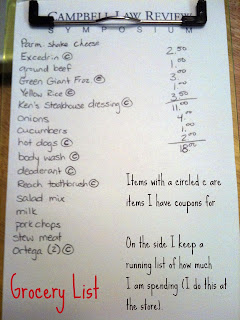 CAMPBELL LAW REVIEW
SYMPOSIUM
Parm. shake cheese
Excedrin Ⓒ 2.50
ground beef
Green Giant Froz. Ⓒ 1.00
Yellow Rice Ⓒ 3.00
Ken's Steakhouse dressing Ⓒ 1.00
onions 3.50
cucumbers 11.00
hot dogs Ⓒ 4.00
body wash Ⓒ 1.00
deoderant Ⓒ 2.00
Reach toothbrush Ⓒ 18.00
salad mix
milk
pork chops
stew meat
Ortega (2) Ⓒ
Items with a circled c are
items I have coupons for
On the side I keep a
running list of how much
I am spending (I do this at
the store).
Grocery List